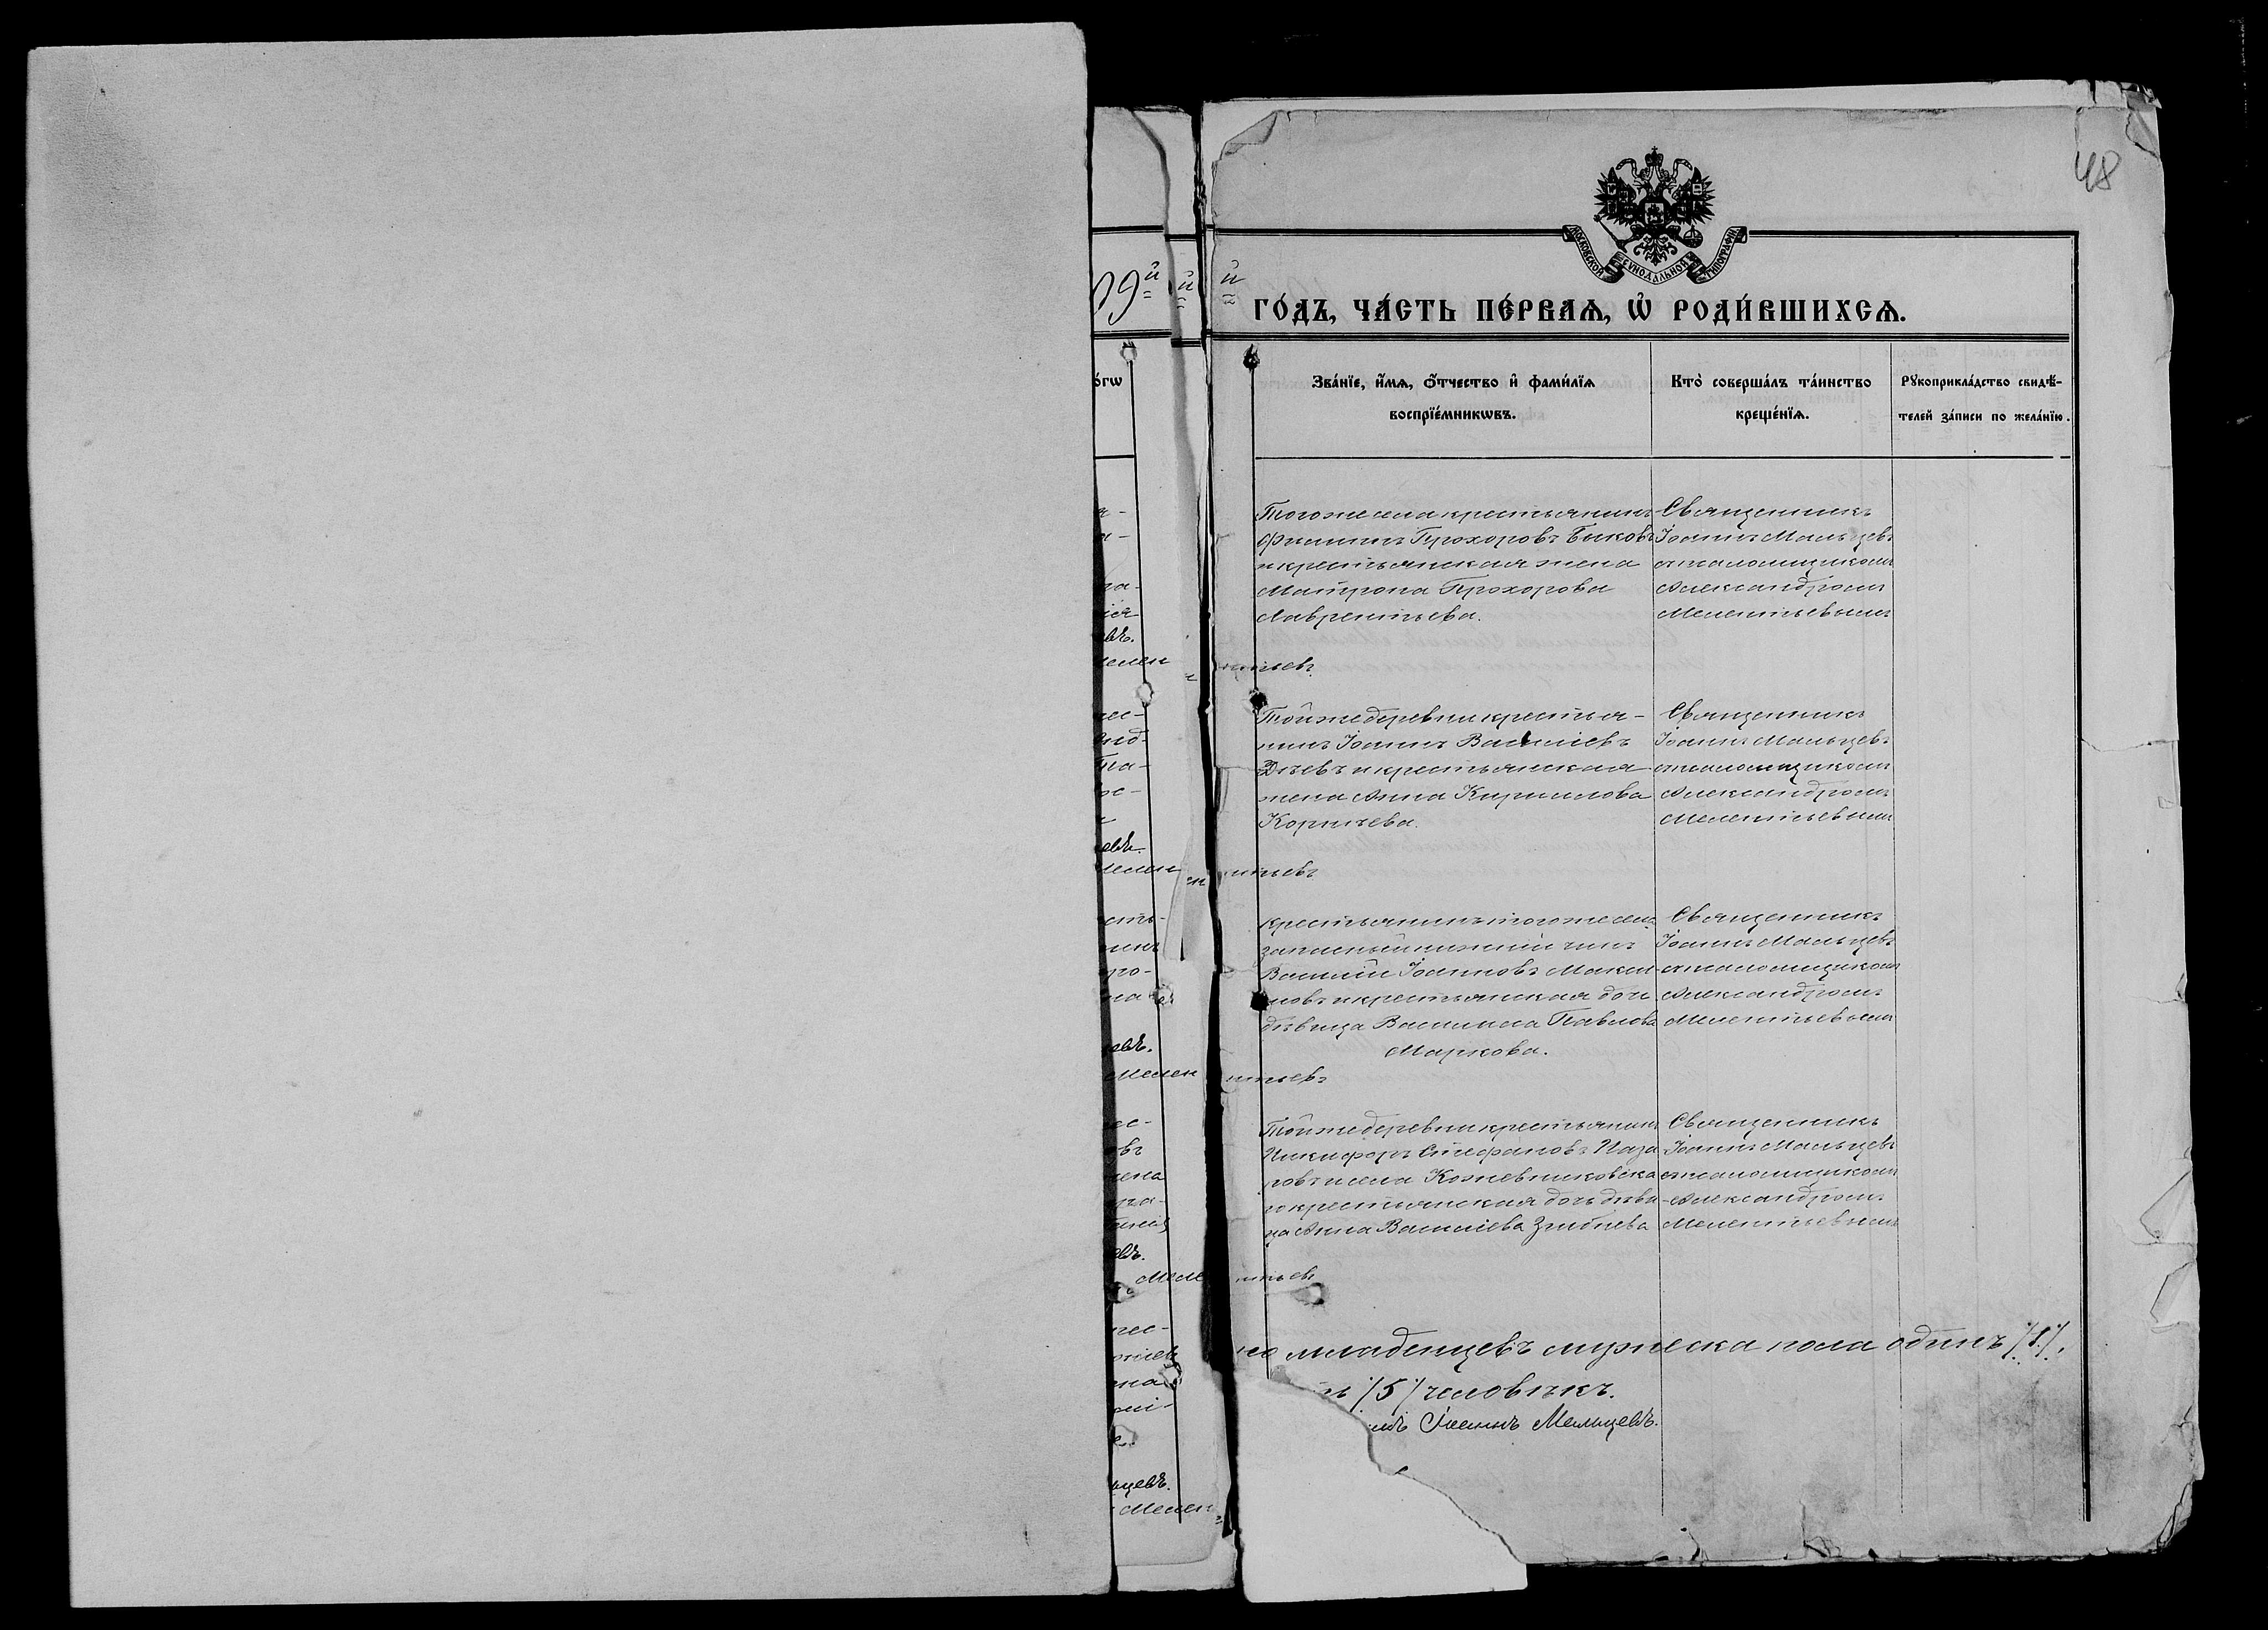 48
МОСКОВСКОЙ СѴНОДАЛЬНОЙ ТИПОГРАФІИ
09й
й
й
ГО́ДЪ, ЧА́СТЬ ПЕ́РВАѦ, Ѡ҆ РОДИ́ВШИХСѦ.
о́гѡ
Зва́нїе, и҆́мѧ, ѻ҆́тчество и҆ фамі́лїѧ
воспрїе́мникѡвъ.
Кто̀ соверша́лъ та́инство
креще́нїѧ.
Рꙋкоприкла́дство свидѣ́-
телей за́писи по жела́нїю.
Тогоже села крестьянинъ
Филиппъ Прохоровъ Быковъ
и крестьянская жена
Матрона Прохорова
Лаврентьева.
Священникъ
Іоаннъ Мальцевъ
съ псаломщикомъ
Александромъ
Мелентьевымъ
евъ.
Мелен
тьевъ.
Тойже деревни крестья-
нинъ Іоаннъ Василіевъ
и крестьянская
жена Анна Кириллова
Корнчева.
Священникъ
Іоаннъ Мальцевъ
съ псаломщикомъ
Александромъ
Мелентьевымъ
евъ.
Мелен
тьевъ
Крестьянинъ тогоже села
запасный нижній чинъ
Василій Іоанновъ Макси-
мовъ и крестьянская дочь
дѣвица Василиса Павлова
Маркова.
Священникъ
Іоаннъ Мальцевъ
съ псаломщикомъ
Александромъ
Мелентьевымъ
евъ.
Мелен
тьевъ
Тойже деревни крестьянинъ
Никифоръ Стефановъ Наза
ровъ и села Кожевниковска
го крестьянская дочь дѣви
ца Анна Василіева
Священникъ
Іоаннъ Мальцевъ
съ псаломщикомъ
Александромъ
Мелентьевымъ
евъ.
Меле
нтьевъ
младенцевъ мужеска пола одинъ /1/.
/5/ человѣкъ.
Іоаннъ Мальцевъ.
ьцевъ.
Мелен